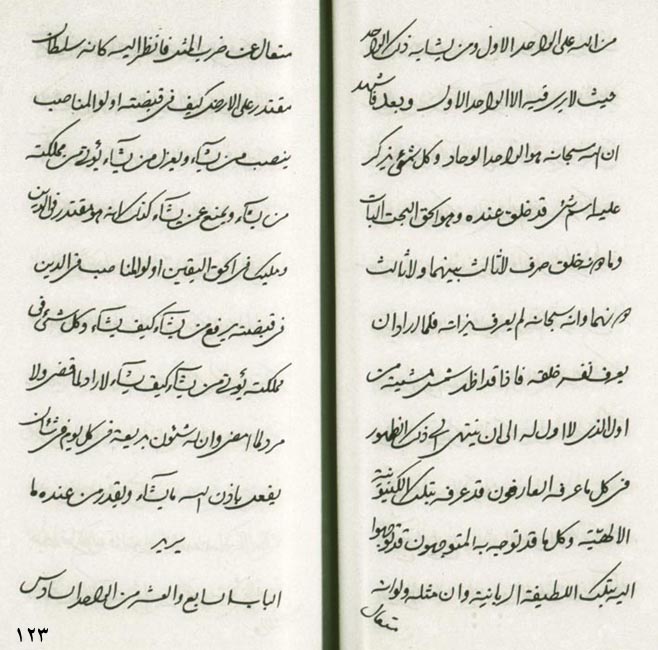 من الله على الواحد الاول ومن يشابه ذلك الواحد
حيث لا يرى فيه الا الواحد الاول وبعد فاشهد
ان الله سبحانه هو الواحد الوحاد وكل شئ يذكر
عليه اسم شئ قد خلق عنده وهو الحق البحت البات
وما دونه خلق صرف لا ثالث بينهما ولا ثالث
دونهما وانه سبحانه لم يعرف بذاته فلما اراد ان
يعرف نفسه خلقه فاذا قد اظهر شمس مشيته من
اول الذى لا اول له الى ان ينتهى الى ذلك الظهور
فى كل ما عرفه العارفون قد عرفه بتلك الكينونية
الالهيّة وكل ما قد توجه به المتوجهون قد توجهوا
اليه بتلك اللطيفة الربانية وان مثله ولو انه
متعال
متعال عن ضرب المثل فانظر اليه كانه سلطان
مقتدر على الارض كيف فى قبضته اولو المناصب
ينصب من يشاء ويعزل من يشاء يؤتى من مملكته
من يشاء ويمنع عمن يشاء كذلك انه هو مقتدر فى الدين
ومليك فى الحق اليقين اولو المناصب فى الدين
فى قبضته يرفع من يشاء كيف يشاء وكل شئ فى
مملكته يؤتى من يشاء كيف يشاء لا راد لما قضى ولا
مرد لما امضى وان له شئون بديعة فى كل يوم فى شان
يفعل باذن الله ما يشاء ويقدر من عنده ما
يريد
الباب السابع والعشر من الواحد السادس
١٢٣